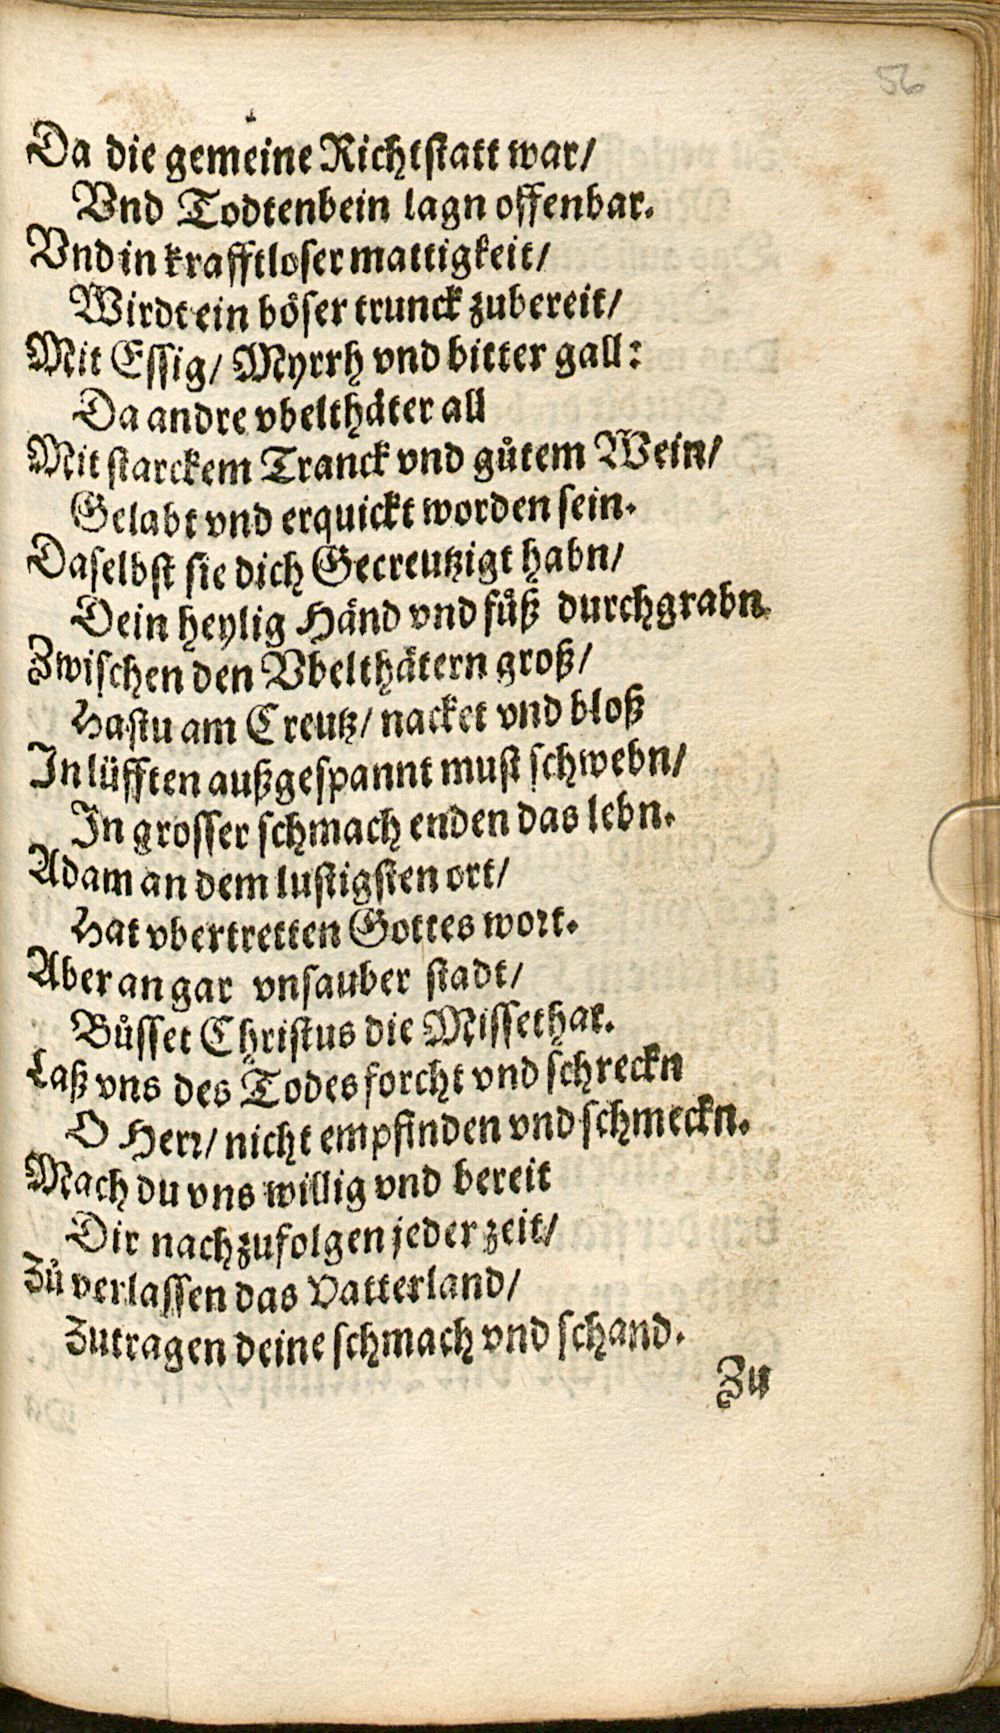 56
Da die gemeine Richtstatt war/
Vnd Todtenbein lagn offenbar.
Vnd in krafftloser mattigkeit/
Wirdt ein böser trunck zubereit/
Mit Essig/ Myrrh vnd bitter gall:
Da andre vbelthäter all
Mit starckem Tranck vnd gůtem Wein/
Gelabt vnd erquickt worden sein.
Daselbst sie dich Gecreutzigt habn/
Dein heylig Händ vnd fůß durchgrabn.
Zwischen den Vbelthätern groß/
Hastu am Creutz/ nacket vnd bloß
In lüfften außgespannt must schwebn/
In grosser schmach enden das lebn.
Adam an dem lustigsten ort/
Hat vbertretten Gottes wort.
Aber an gar vnsauber stadt/
Bůsset Christus die Missethat.
Laß vns des Todes forcht vnd schreckn
O Herr/ nicht empfinden vnd schmeckn.
Mach du vns willig vnd bereit
Dir nachzufolgen jeder zeit/
Zů verlassen das Vatterland/
Zutragen deine schmach vnd schand.
Zu